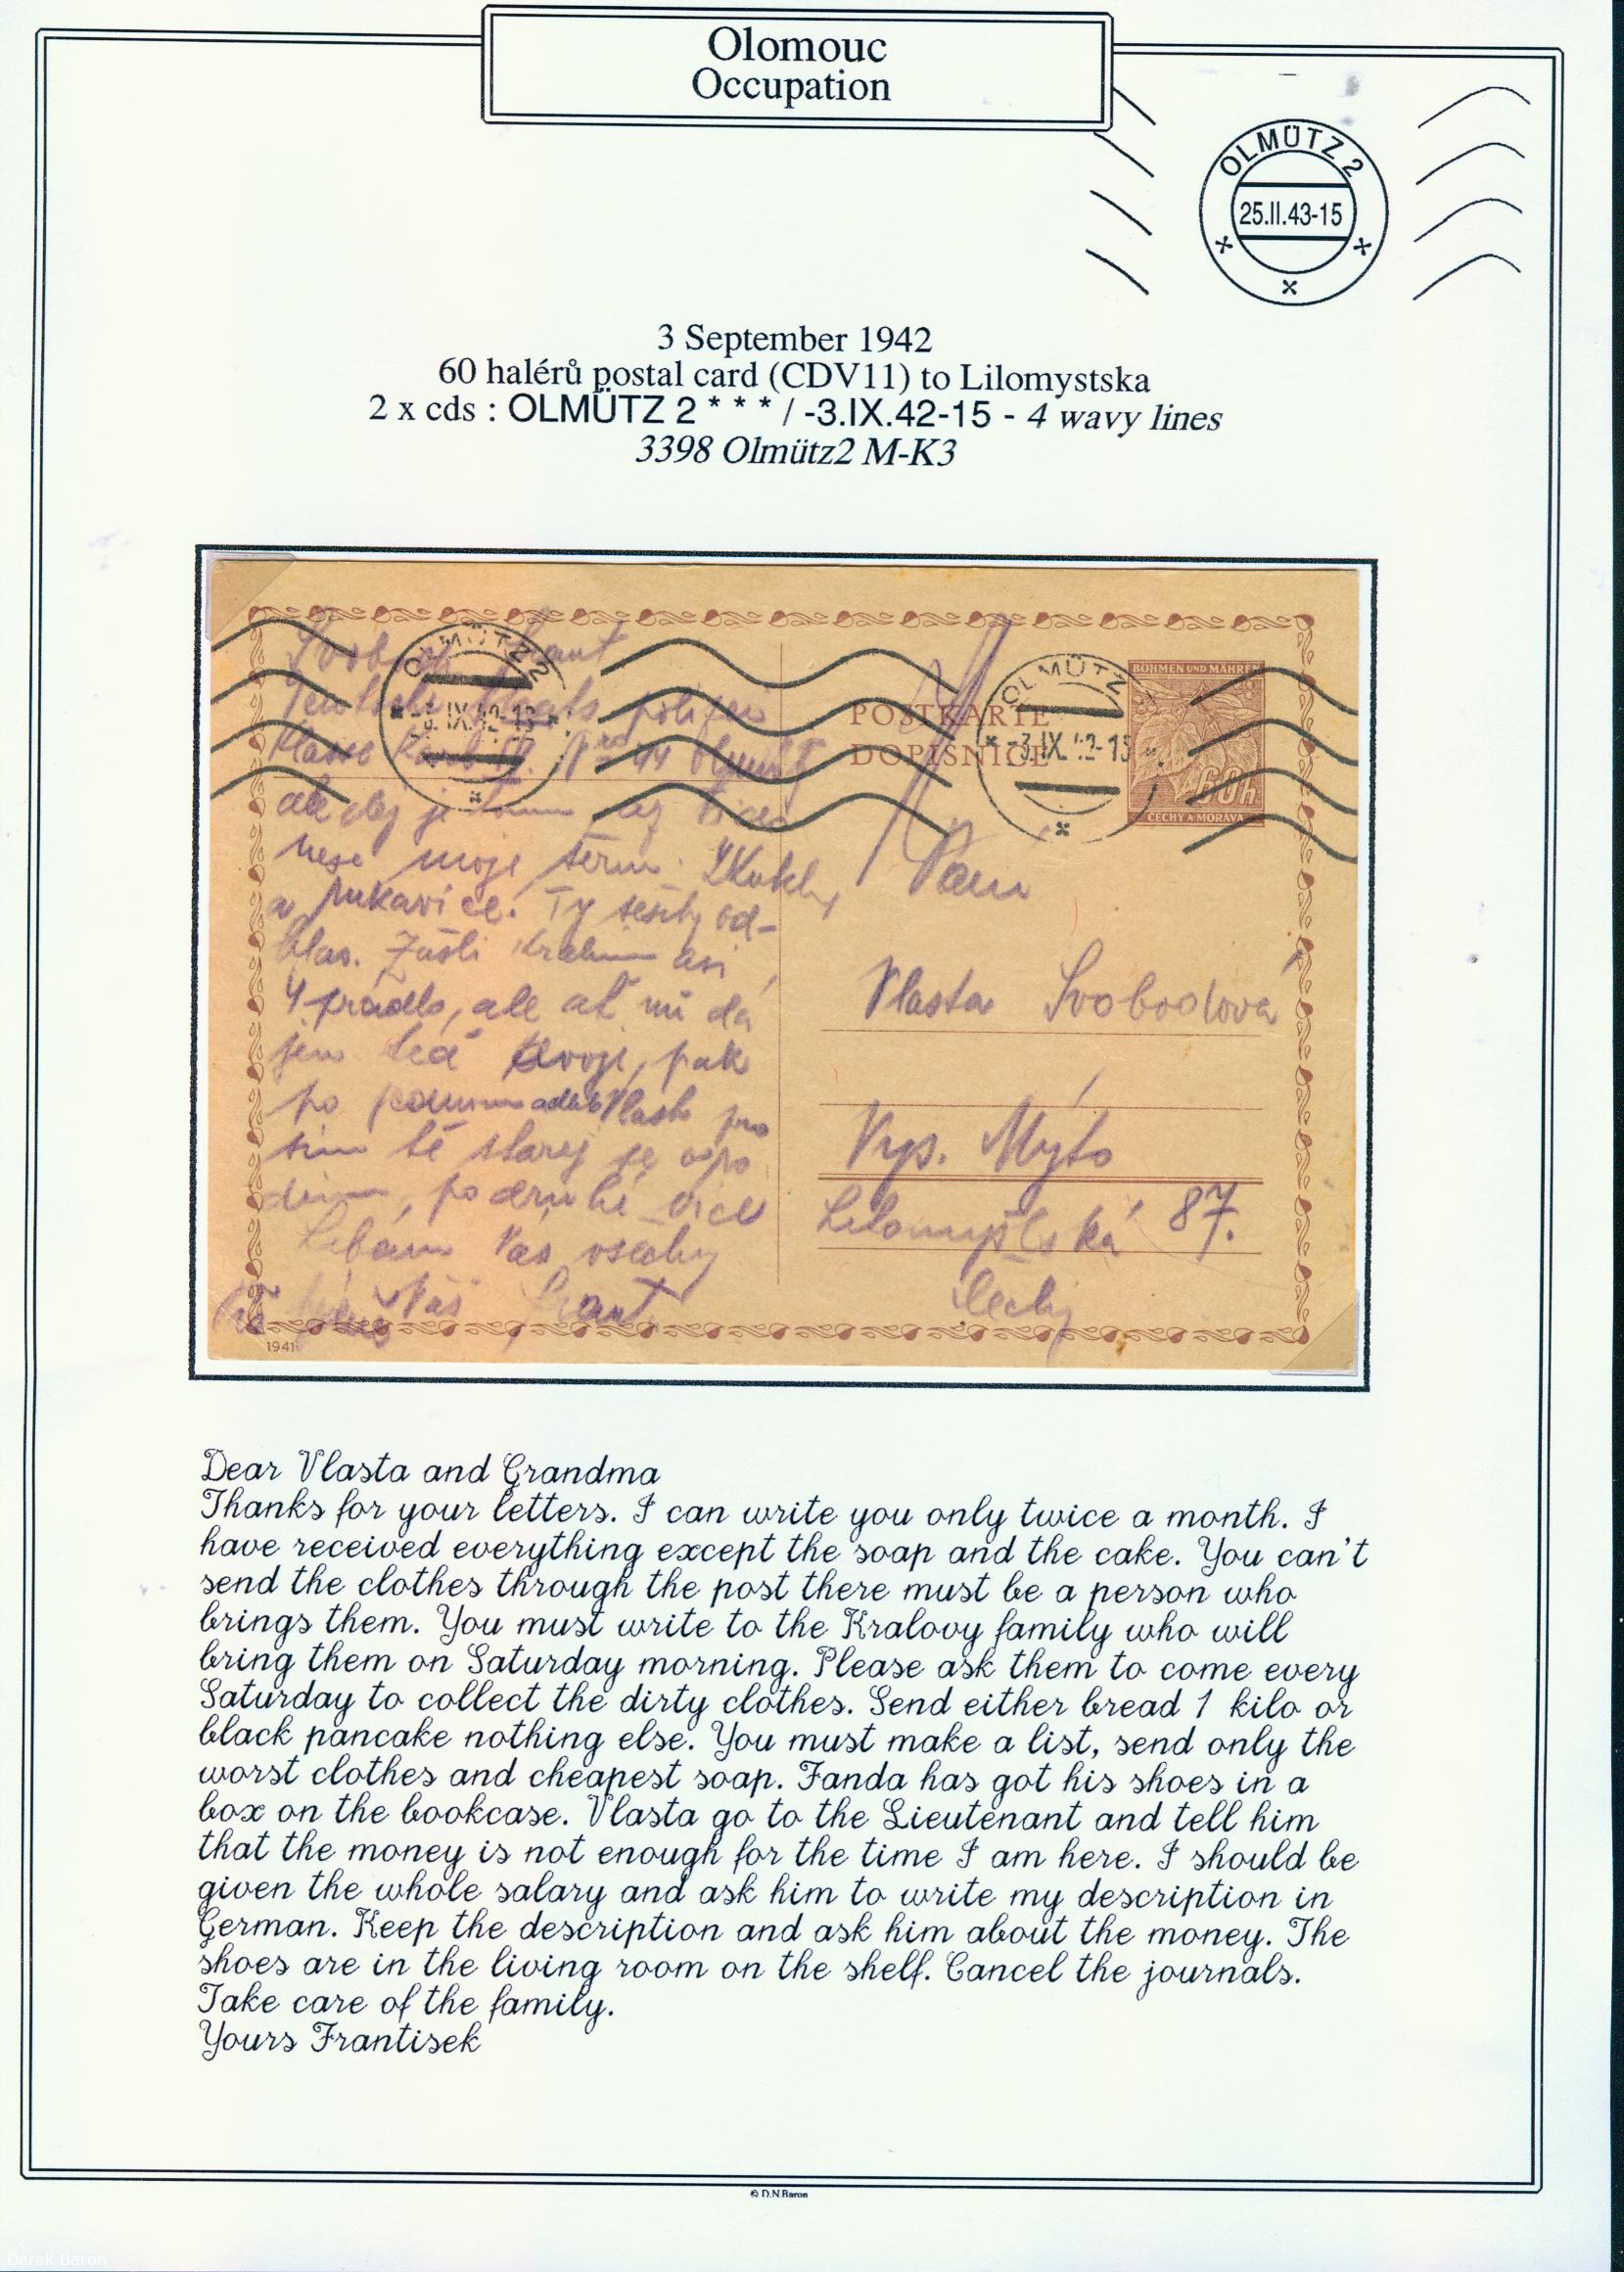 Olomouc
Occupation
OLMÜTZ 2
25.II.43-15
3 September 1942
60 halérů postal card (CDV11) to Lilomystska
2 x cds : OLMÜTZ 2 * * * / -3.IX.42-15 - 4 wavy lines
3398 Olmütz2 M-K3
OLMÜTZ 2
-3.IX.42-15
OLMÜTZ
-3.IX.42-15
BÖHMEN UND MÄHREN
60h
ČECHY A MORAVA
POSTKARTE
DOPISNICE
Frant
44
ale
moje
a rukavice. Ty sešity od-
asi
4 prádlo, ale ať mi dá
jen pak
po
sim tě starej se
podruhé více
Líbám Vás všechny
Váš Frant
1941
Paní
Vlasta Svobodova
Vys. Mýto
Litomyšlská 87.
Čechy
Dear Vlasta and Grandma
Thanks for your letters. I can write you only twice a month. I
have received everything except the soap and the cake. You can't
send the clothes through the post there must be a person who
brings them. You must write to the Kralovy family who will
bring them on Saturday morning. Please ask them to come every
Saturday to collect the dirty clothes. Send either bread 1 kilo or
black pancake nothing else. You must make a list, send only the
worst clothes and cheapest soap. Fanda has got his shoes in a
box on the bookcase. Vlasta go to the Lieutenant and tell him
that the money is not enough for the time I am here. I should be
given the whole salary and ask him to write my description in
German. Keep the description and ask him about the money. The
shoes are in the living room on the shelf. Cancel the journals.
Take care of the family.
Yours Frantisek
© D.N.Baron
Derek Baron